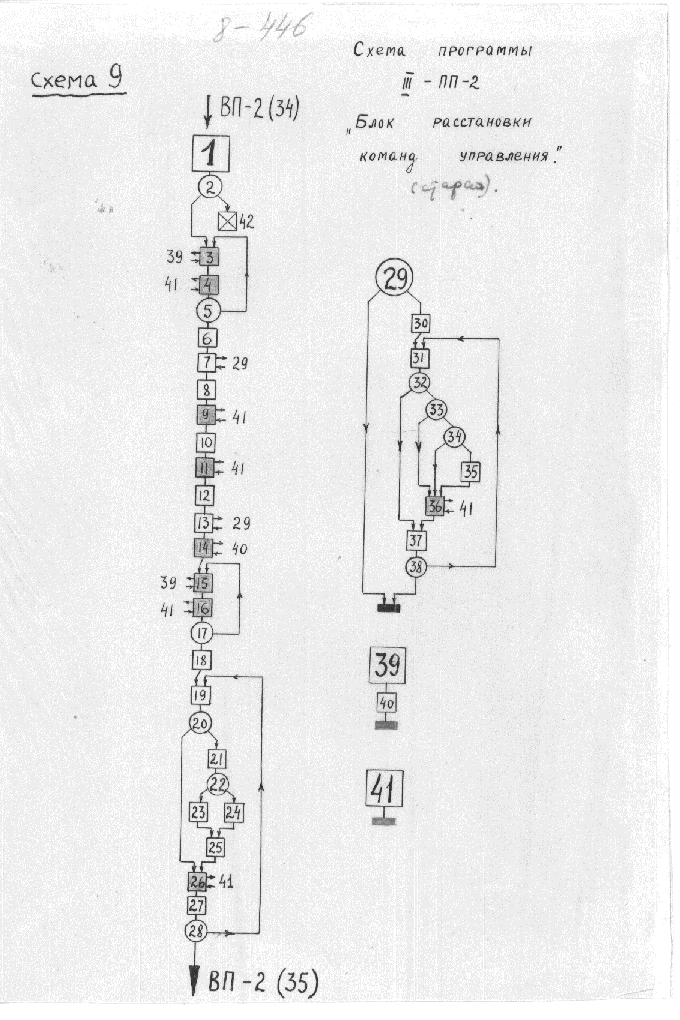 8-446
Схема программы
Схема 9
III - ПП-2
ВП-2 (34)
„Блок расстановки
команд управления."
(старая).
1
2
42
39 3
41 4
5
6
7 29
8
9 41
10
11 41
12
13 29
14 40
39 15
41 16
17
18
19
20
21
22
23 24
25
26 41
27
28
ВП-2 (35)
29
30
31
32
33
34
35
36 41
37
38
39
40
41